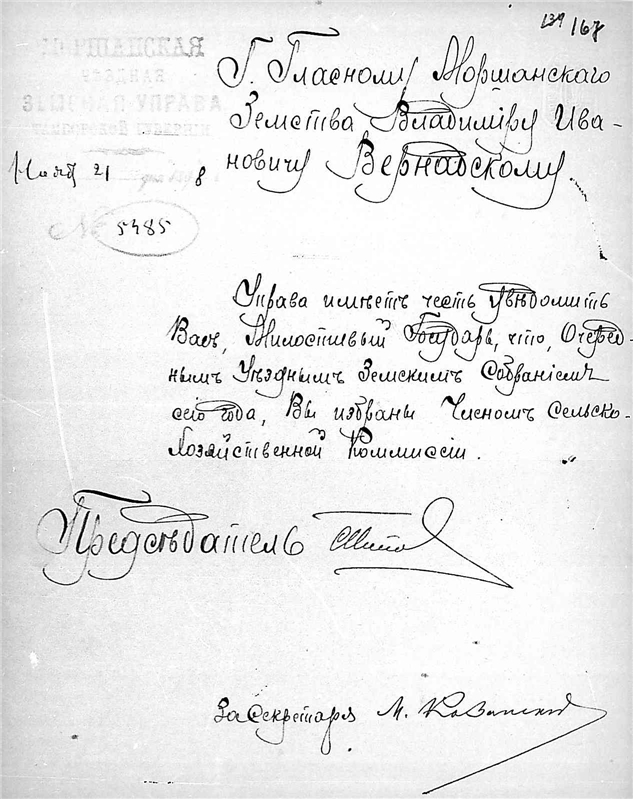 139 167
МОРШАНСКАЯ
УѢЗДНАЯ
ЗЕМСКАЯ УПРАВА
ТАМБОВСКОЙ ГУБЕРНІИ
Нояб 21
8
№ 5485
Г. Гласному Моршанскаго
Земства Владиміру Ива-
новичу Вернадскому.
Управа имѣетъ честь увѣдомить
Васъ, Милостивый Государь, что, Очеред-
нымъ Уѣзднымъ Земскимъ Собраніемъ
сего года, Вы избраны Членомъ Сельско-
Хозяйственной Коммиссіи.
Предсѣдатель
За Секретаря М.